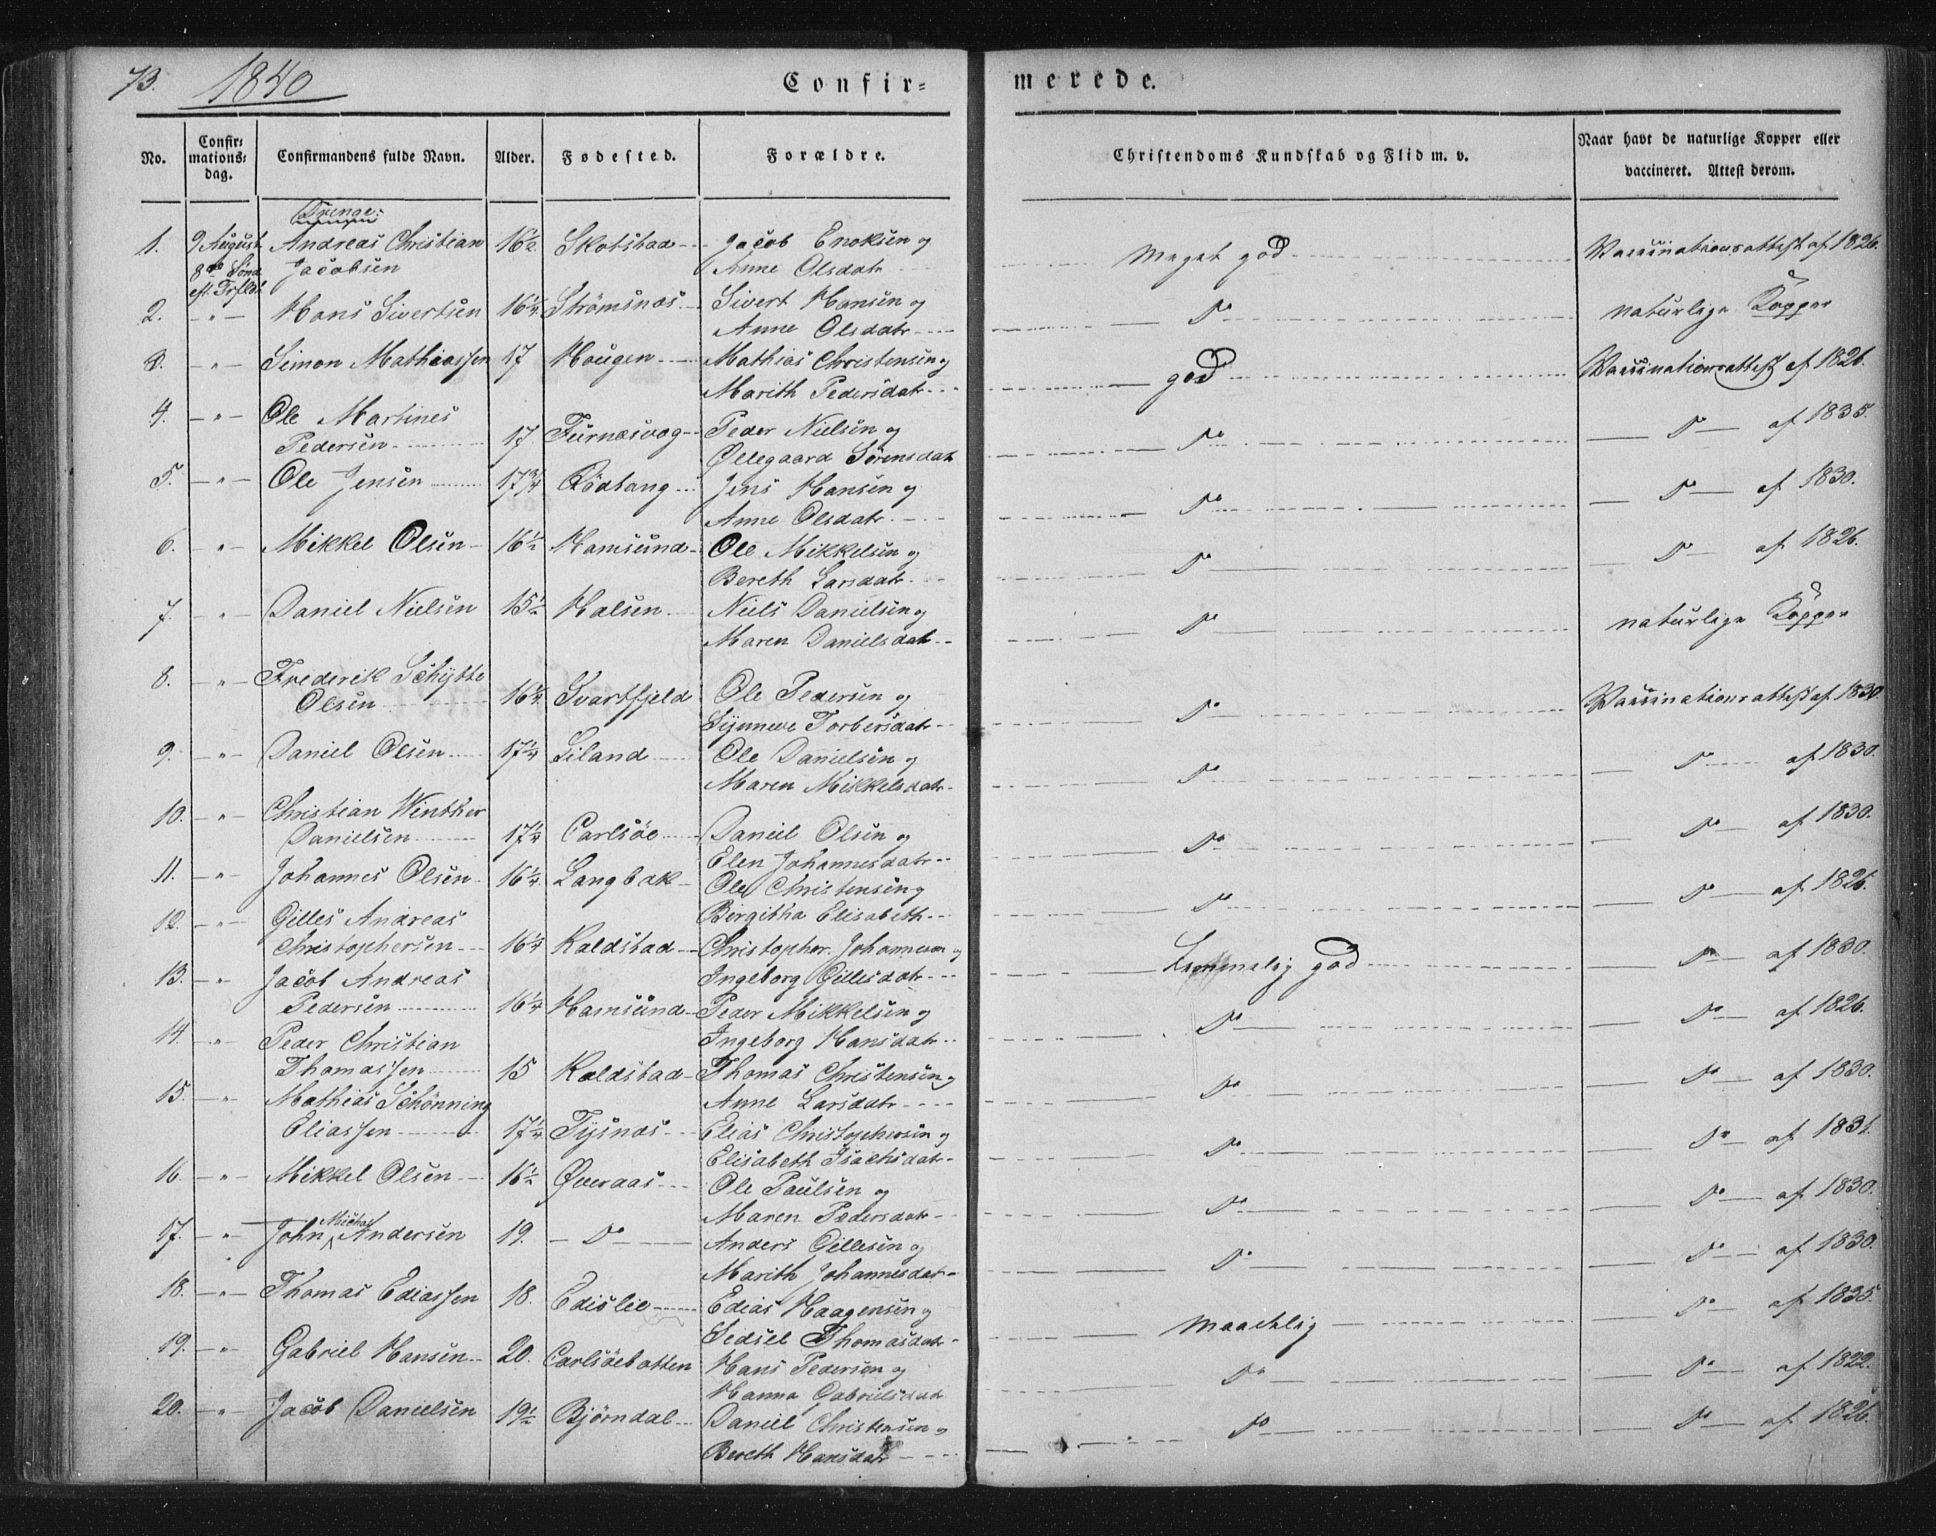 73. 1840
Confir- merede.
No. Confir-mations-dag. Confirmandens fulde Navn. Alder. Fødested. Forældre. Christendoms Kundskab og Flid m. v. Naar havt de naturlige Kopper eller vaccineret. Attest derom.
Drenge:
1. 9 August Andreas Christian 16½ Skotstad Jacob Enoksen og Meget god Vaccinationsattest af 1826.
8de Sönd. Jacobsen Anne Olsdatr
eft. Trflth
2. -"- Hans Sivertsen 16¼ Strömsnæs Sivert Hansen og Do naturlige Kopper
Anne Olsdatr
3. -"- Simon Mathiassen 17 Hougen Mathias Christensen og god Vaccinationsattest af 1826.
Marith Pedersdatr
4. -"- Ole Martines
Pedersen 17 Furnæsvag Peder Nielsen og Do Do af 1835.
Øllegaard Sörensdatr
5. -"- Ole Jensen 17¾ Rödtang Jens Hansen og Do Do af 1830.
Anne Olsdatr
6. -"- Mikkel Olsen 16½ Hamsund Ole Mikkelsen og Do Do af 1826.
Bereth Larsdatr
7. -"- Daniel Nielsen 15½ Halsen Niels Danielsen og Do naturlige Kopper
Maren Danielsdatr
8. -"- Frederik Schytte
Olsen 16¼ Svartfjeld Ole Pedersen og Do Vaccinationsattest af 1830.
Synneve Torbersdatr
9. -"- Daniel Olsen 17¼ Siland Ole Danielsen og Do Do af 1830.
Maren Mikkelsdatr
10. -"- Christian Winther
Danielsen 17¼ Carlsöe Daniel Olsen og Do Do af 1830.
Elen Johannesdatr
11. -"- Johannes Olsen 16¼ Langbak Ole Christensen og Do Do af 1826.
Birgitha Elisabeth
12. -"- Gilles Andreas
Christophersen 16¼ Kaldstad Christopher Johannesen og Temmelig god Do af 1830.
Ingeborg Gillesdatr
13. -"- Jacob Andreas
Pedersen 16¼ Hamsund Peder Mikkelsen og Do Do af 1826.
Ingeborg Hansdatr
14. -"- Peder Christian
Thomassen 15 Kaldstad Thomas Christensen og Do Do af 1830.
Anne Larsdatr
15. -"- Mathias Schönning
Eliassen 17¼ Tysnæs Elias Christophersen og Do Do af 1831.
Elisabeth Isachsdatr
16. -"- Mikkel Olsen 16½ Øveraas Ole Paulsen og Do Do af 1830.
Maren Pedersdatr
17. -"- John Michal Andersen 19. Do Anders Gillesen og Do Do af 1830.
Marith Johannesdatr
18. -"- Thomas Ediassen 18. Edislie Edias Haagensen og Maadelig Do af 1835.
Sedsel Thomasdatr
19. -"- Gabriel Hansen 20. Carlsöebotten Hans Pedersen og Do Do af 1822.
Hanna Gabrielsdatr
20. -"- Jacob Danielsen 19½ Björndal Daniel Christensen og Do Do af 1826.
Bereth Hansdatr